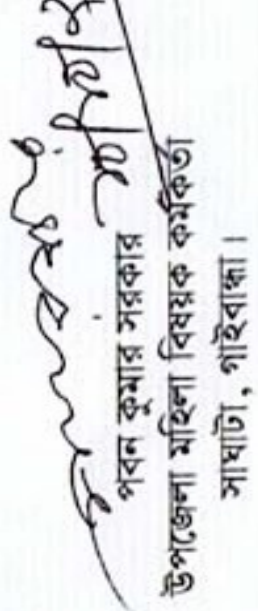 পবন কুমার সরকার
উপজেলা মহিলা বিষয়ক কর্মকর্তা
সাঘাটা, গাইবান্ধা।